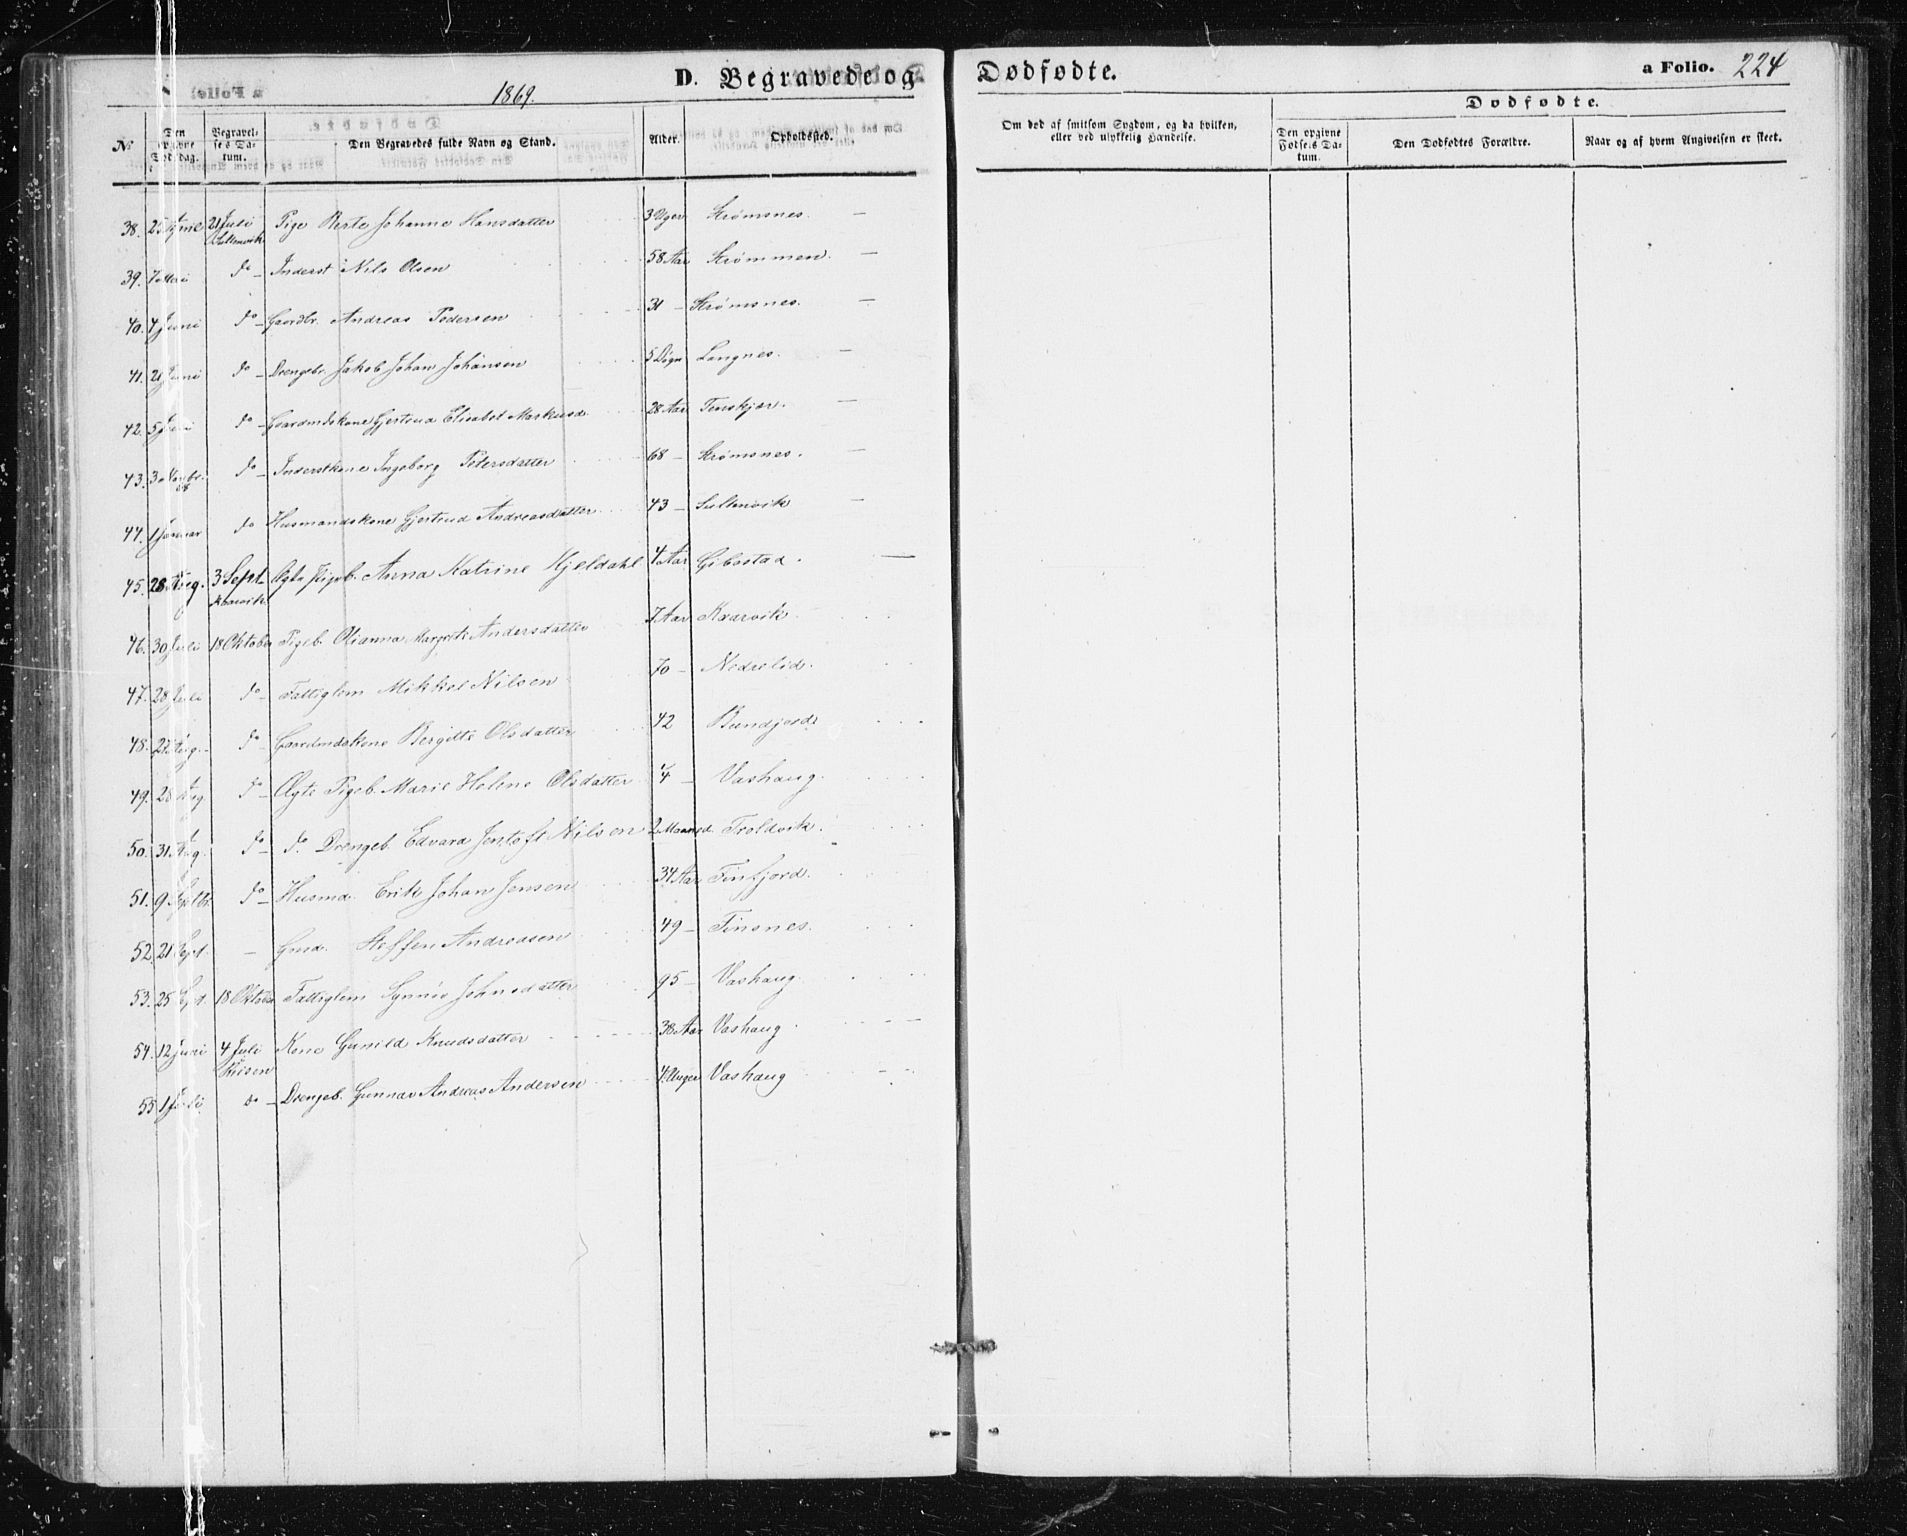 D. Begravede og Dødfødte. a Folio. 224
1869.
Dødfødte.
No Den opgivne Dødsdag. Begravelses Datum. Den Begravedes fulde Navn og Stand. Alder. Opholdssted. Om død af smitsom Sygdom, og da hvilken, eller ved ulykkelig Hændelse. Den opgivne Fødsels Datum. Den Dødfødtes Forældre. Naar og af hvem Angivelsen er skeet.
38. 25 April 21 Juli Pige Berte Johanne Hansdatter 3 Uger Strømsnes. —
39. 7 Mai do - Inderst Nils Olsen 58 Aar Strømmen. —
40. 4 Juni do - Gaardbr. Andreas Pedersen 31 - Strømsnes. —
41. 21 Juni do - Drengebr. Jakob Johan Johansen 5 Døgn Langnes. —
42. 5 Juli do - Gaardmdskone Gjertrud Elisabet Markusd. 28 Aar Tenskjær. —
43. 3 Novbr. 68 do - Inderstkone Ingeborg Petersdatter 68 - Strømsnes. —
44. 1 Januar do Husmandskone Gjertrud Andreasdatter 43 - Sultenvik —
45. 28 Aug. 3 Sept. Ægte Pigeb. Anna Katrine Kjeldahl 4 Aar Gibostad. —
46. 30 Juli 18 Oktober Pigeb. Olianna Margrete Andersdatter 7 Aar Kvarvik
47. 28 Juli do - Fattiglem Mikkel Nilsen 70 - Nedrelid.
48. 22 Aug. do - Gaardmdskone Bergitte Olsdatter 42 Bundjord
49. 28 Aug. do - Ægte Pigeb. Marie Helene Olsdatter 4 - Vashaug.
50. 31 Aug. do - do. Drengeb. Edvard Jentoft Nilsen 2 Maaned. Troldvik.
51. 9 Septbr. do - Husmd. Erik Johan Jensen 34 Aar Finfjord.
52. 21 Sept. - Gmd. Steffen Andreasen 49 - Finsnes.
53. 25 Sept. 18 Oktober Fattiglem Synnøv Johnsdatter 95 - Vashaug.
54. 12 Juni 4 Juli Kone Gunild Knudsdatter 38 Aar Vashaug.
55. 1 Juli do - Drengeb. Gunnar Andreas Andersen 4 Uger Vashaug